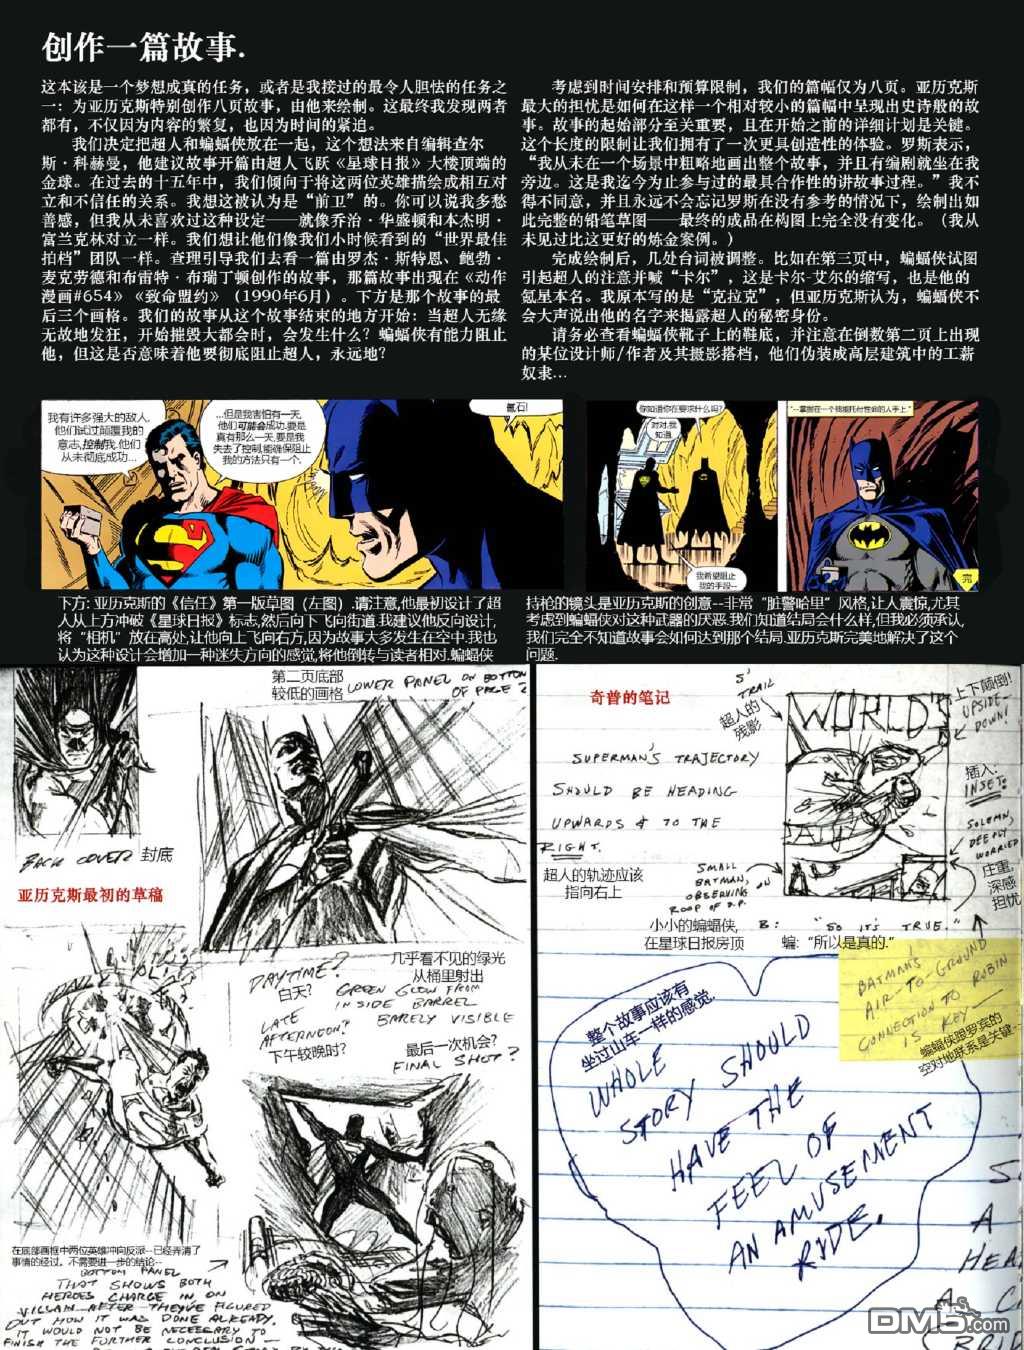 创作一篇故事.
这本该是一个梦想成真的任务，或者是我接过的最令人胆怯的任务之
一：为亚历克斯特别创作八页故事，由他来绘制。这最终我发现两者
都有，不仅因为内容的繁复，也因为时间的紧迫。
我们决定把超人和蝙蝠侠放在一起，这个想法来自编辑查尔
斯·科赫曼，他建议故事开篇由超人飞跃《星球日报》大楼顶端的
金球。在过去的十五年中，我们倾向于将这两位英雄描绘成相互对
立和不信任的关系。我想这被认为是“前卫”的。你可以说我多愁
善感，但我从未喜欢过这种设定——就像乔治·华盛顿和本杰明·
富兰克林对立一样。我们想让他们像我们小时候看到的“世界最佳
拍档”团队一样。查理引导我们去看一篇由罗杰·斯特恩、鲍勃·
麦克劳德和布雷特·布瑞丁顿创作的故事，那篇故事出现在《动作
漫画#654》《致命盟约》（1990年6月）。下方是那个故事的最
后三个画格。我们的故事从这个故事结束的地方开始：当超人无缘
无故地发狂，开始摧毁大都会时，会发生什么？蝙蝠侠有能力阻止
他，但这是否意味着他要彻底阻止超人，永远地？
考虑到时间安排和预算限制，我们的篇幅仅为八页。亚历克斯
最大的担忧是如何在这样一个相对较小的篇幅中呈现出史诗般的故
事。故事的起始部分至关重要，且在开始之前的详细计划是关键。
这个长度的限制让我们拥有了一次更具创造性的体验。罗斯表示，
“我从未在一个场景中粗略地画出整个故事，并且有编剧就坐在我
旁边。这是我迄今为止参与过的最具合作性的讲故事过程。”我不
得不同意，并且永远不会忘记罗斯在没有参考的情况下，绘制出如
此完整的铅笔草图——最终的成品在构图上完全没有变化。（我从
未见过比这更好的炼金案例。）
完成绘制后，几处台词被调整。比如在第三页中，蝙蝠侠试图
引起超人的注意并喊“卡尔”，这是卡尔-艾尔的缩写，也是他的
氪星本名。我原本写的是“克拉克”，但亚历克斯认为，蝙蝠侠不
会大声说出他的名字来揭露超人的秘密身份。
请务必查看蝙蝠侠靴子上的鞋底，并注意在倒数第二页上出现
的某位设计师/作者及其摄影搭档，他们伪装成高层建筑中的工薪
奴隶…
我有许多强大的敌人.
他们试过颠覆我的
意志,控制我.他们
从未彻底成功…
…但是我害怕有一天,
他们可能会成功.要是
真有那么一天,要是我
失去了控制,能确保阻止
我的方法只有一个.
氪石!
你知道你在要求什么吗?
对.对.我
知道.
我希望阻止
我的手段--
完
下方: 亚历克斯的《信任》第一版草图（左图）.请注意,他最初设计了超
人从上方冲破《星球日报》标志,然后向下飞向街道.我建议他反向设计,
将“相机”放在高处,让他向上飞向右方,因为故事大多发生在空中.我也
认为这种设计会增加一种迷失方向的感觉,将他倒转与读者相对.蝙蝠侠
持枪的镜头是亚历克斯的创意--非常“脏警哈里”风格,让人震惊,尤其
考虑到蝙蝠侠对这种武器的厌恶.我们知道结局会什么样,但我必须承认,
我们完全不知道故事会如何达到那个结局.亚历克斯完美地解决了这个
问题.
第二页底部
较低的画格
LOWER PANEL ON BOTTOM
OF PAGE 2
BACK COVER 封底
亚历克斯最初的草稿
DAYTIME?
白天?
LATE
AFTERNOON?
下午较晚时?
几乎看不见的绿光
从桶里射出
GREEN GLOW FROM
INSIDE BARREL
BARELY VISIBLE
最后一次机会?
FINAL SHOT?
在底部画框中两位英雄冲向反派--已经弄清了
事情的经过。不需要进一步的结论--
BOTTOM PANEL
THAT SHOWS BOTH
HEROES CHARGE IN ON
VILLAIN AFTER THEY'VE FIGURED
OUT HOW IT WAS DONE ALREADY.
IT WOULD NOT BE NECESSARY TO
FINISH THE FURTHER CONCLUSION—
奇普的笔记
S'
TRAIL
超人的
残影
WORLD'S
DAILY
上下颠倒!
UPSIDE-
DOWN!
插入:
INSET:
SOLEMN,
DEEPLY
WORRIED
庄重,
深感
担忧
SUPERMAN'S TRAJECTORY
SHOULD BE HEADING
UPWARDS & TO THE
RIGHT.
超人的轨迹应该
指向右上
SMALL
BATMAN,
OBSERVING
ROOF OF D.P.
小小的蝙蝠侠,
在星球日报房顶
B: "SO IT'S TRUE."
蝙:“所以是真的.”
BATMAN'S
AIR-TO-GROUND
CONNECTION TO ROBIN
IS KEY—
蝙蝠侠跟罗宾的
空对地联系是关键--
整个故事应该有
坐过山车一样的感觉.
WHOLE
STORY SHOULD
HAVE THE
FEEL OF
AN AMUSEMENT
RIDE.
A
HEA
A C
DM5.com